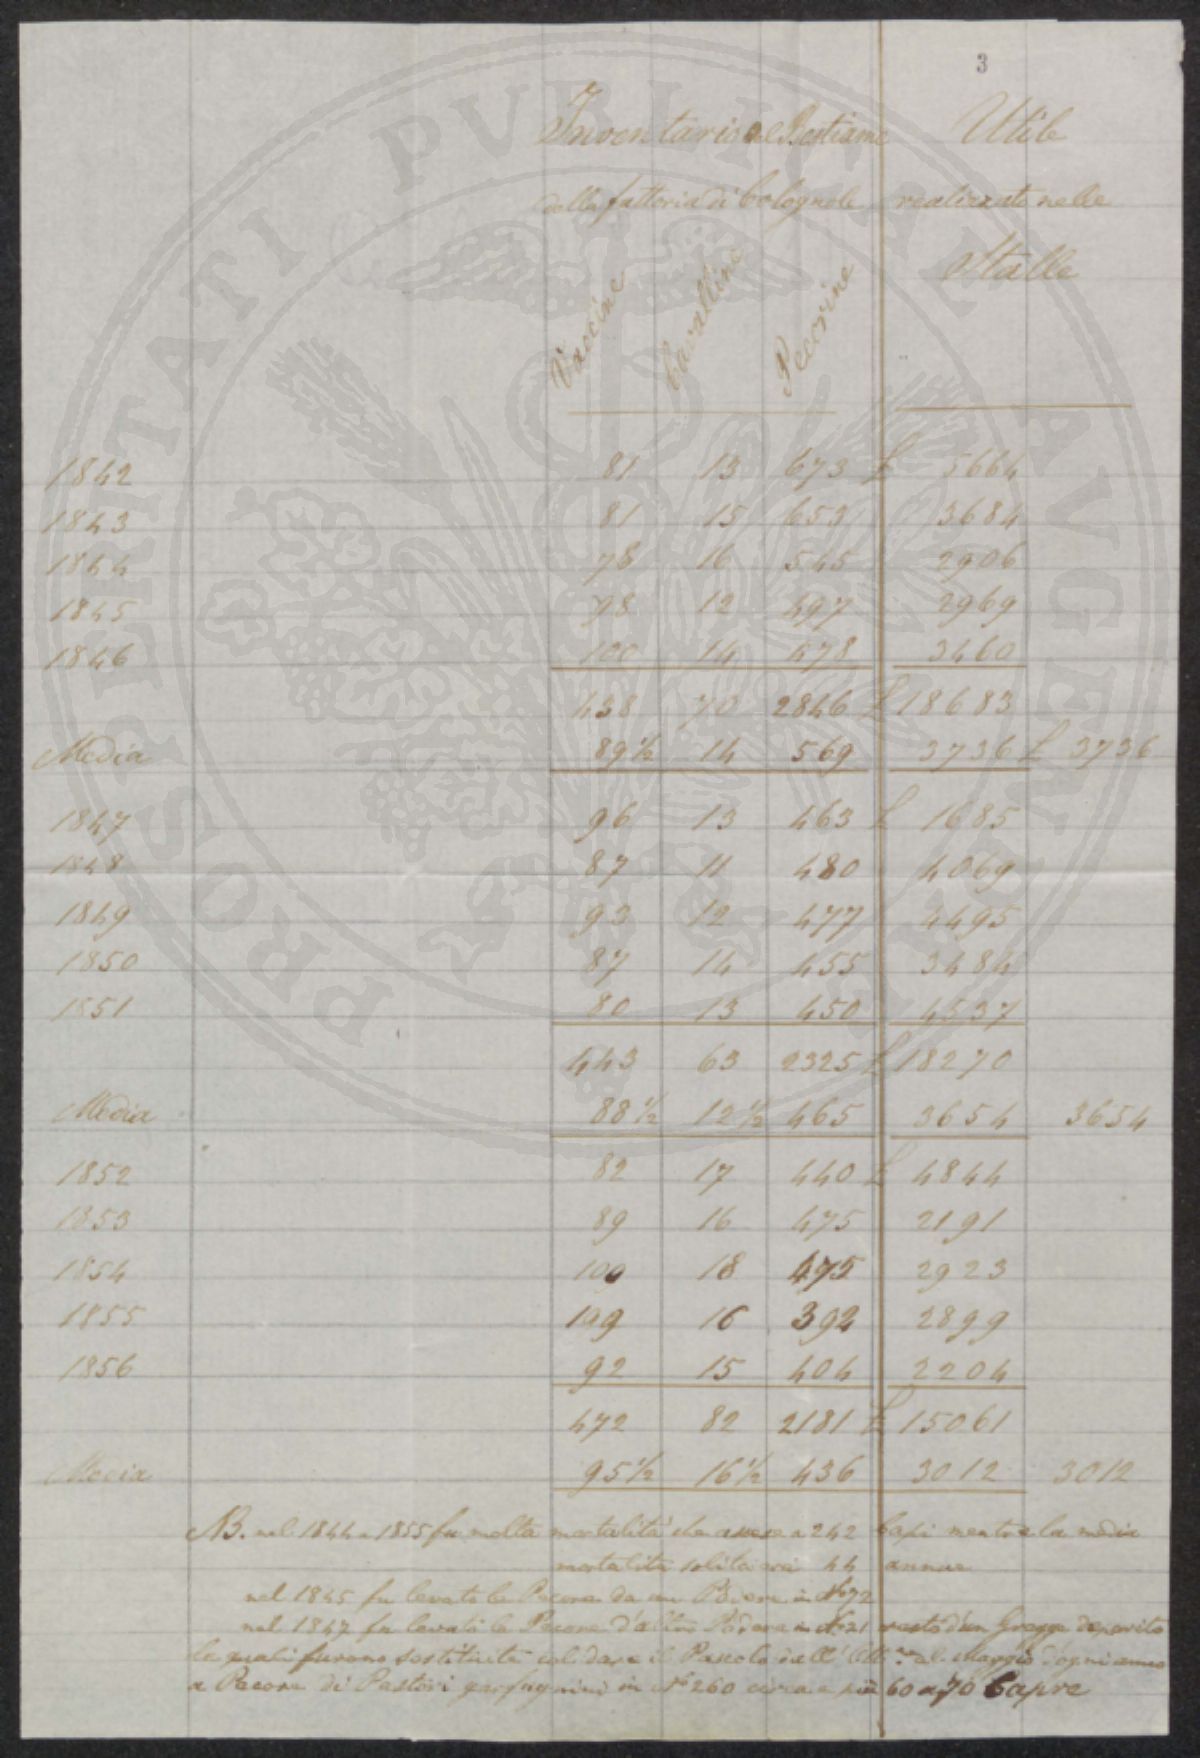 3
Inventario del Bestiame Utile
della fattoria di Colognole realizzato nelle
Stalle
Vaccine Cavalline Pecorine
1842 81 13 673 £ 5664
1843 81 15 653 3684
1844 78 16 545 2906
1845 98 12 497 2969
1846 100 14 478 3460
438 70 2846 £ 18683
Media 89½ 14 569 3736 £ 3736
1847 96 13 463 £ 1685
1848 87 11 480 4069
1849 93 12 477 4495
1850 87 14 455 3484
1851 80 13 450 4537
443 63 2325 £ 18270
Media 88½ 12½ 465 3654 3654
1852 82 17 440 £ 4844
1853 89 16 475 2191
1854 100 18 475 2923
1855 109 16 392 2899
1856 92 15 404 2204
472 82 2181 £ 15061
Media 95½ 16½ 436 3012 3012
NB. nel 1844 a 1855 fu molta mortalità che ascese a 242 Capi mentre la media
mortalità solita era 44 annue
nel 1845 fu levato le Pecore da un Podere in No 72
nel 1847 fu levati le Pecore d'altro Podere in No 21 resto d'un Gregge deperito
le quali furono sostituite col dare il Pascolo dall' al Maggio d'ogni anno
a Pecore di Pastori garfagnini in No 260 circa e più 60 a 70 Capre
PROSPERITATI PUBLICAE AVGENDAE